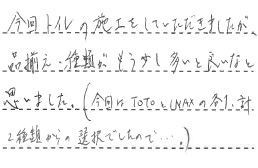 今回トイレの施工をしていただきましたが、
品揃え・種類がもう少し多いと良いなと
思いました。(今回はTOTOとINAXの各1、計
2種類からの選択でしたので…。)